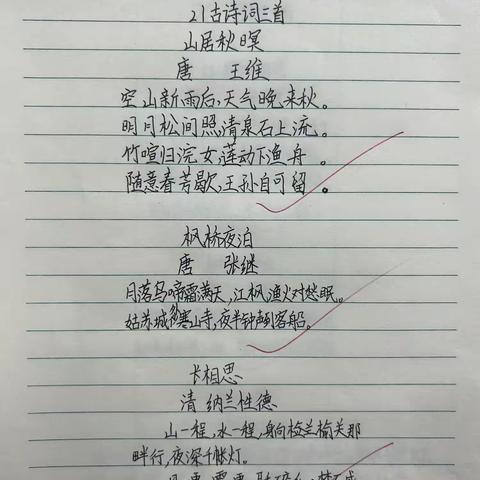 21古诗词三首
山居秋暝
唐 王维
空山新雨后,天气晚来秋。
明月松间照,清泉石上流。
竹喧归浣女,莲动下渔舟。
随意春芳歇,王孙自可留。
枫桥夜泊
唐 张继
月落乌啼霜满天,江枫渔火对愁眠。
姑苏城外寒山寺,夜半钟声到客船。
长相思
清 纳兰性德
山一程,水一程,身向榆关那
畔行,夜深千帐灯。